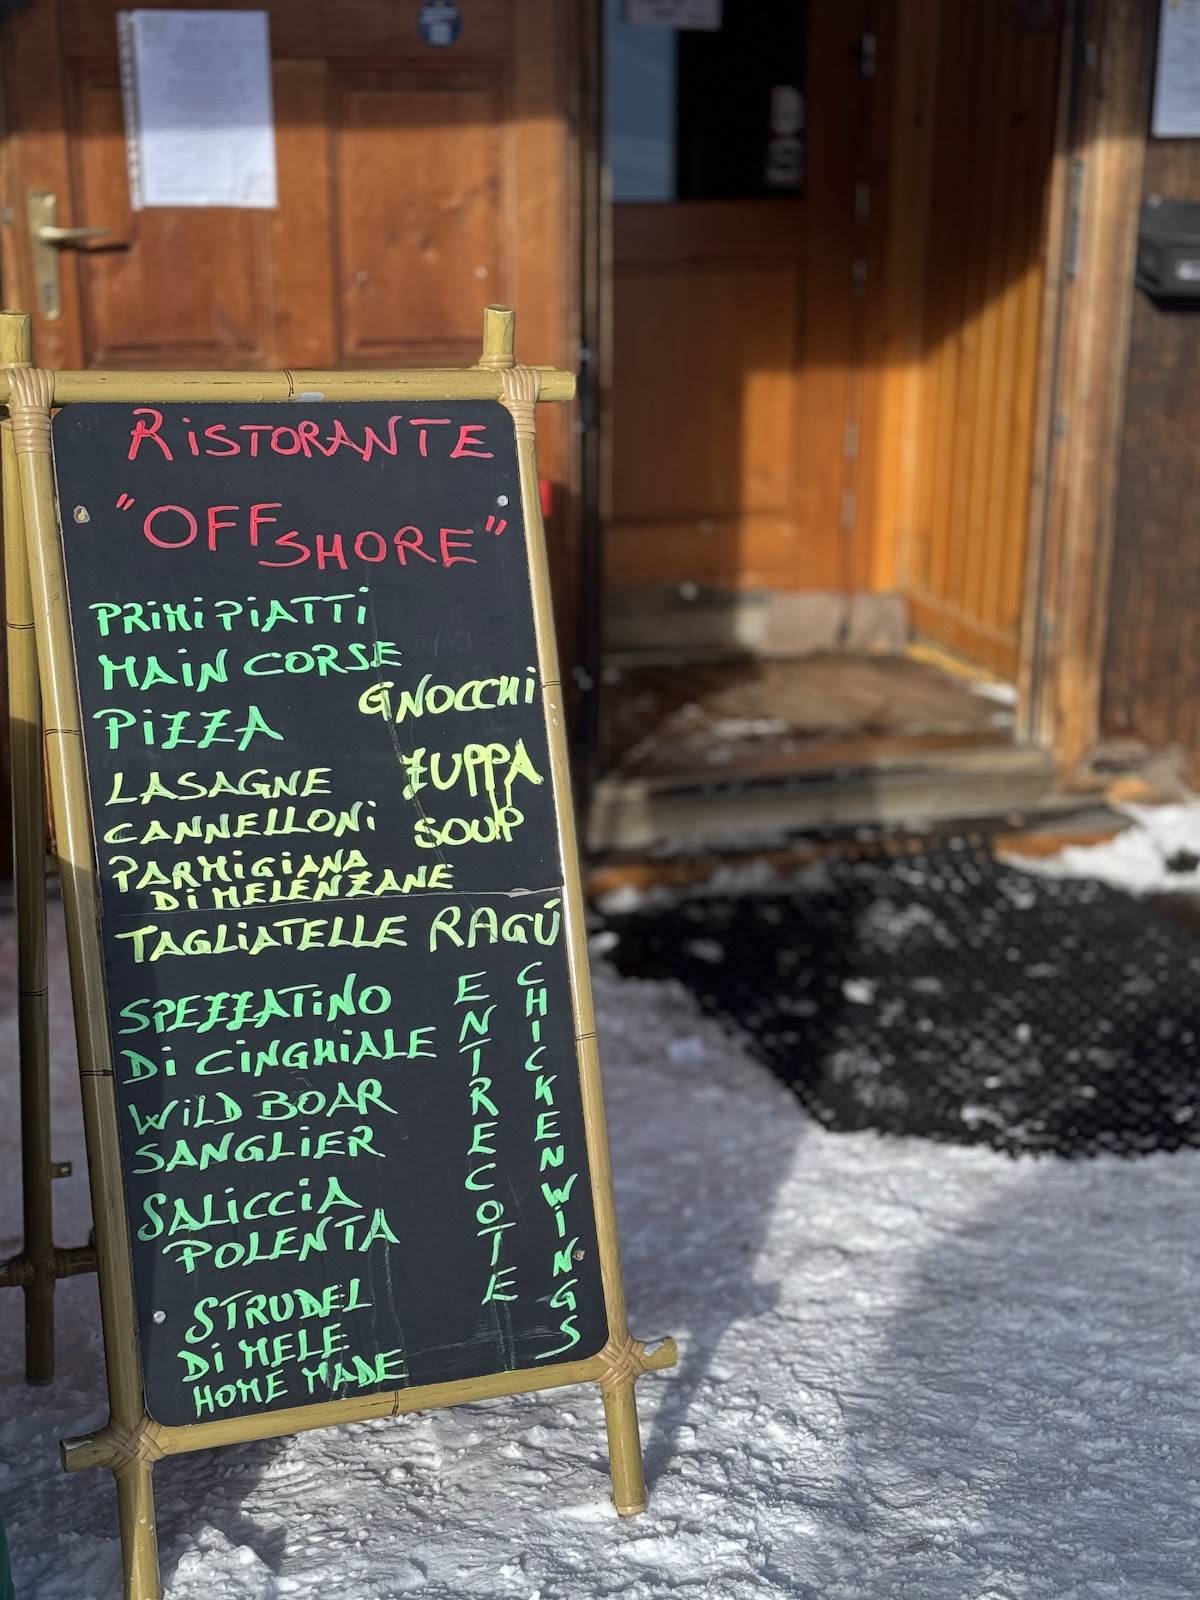 RiSTORANTE
"OFFSHORE"
PRiMi PiATTi
MAiN CORSE
GNOCCHi
PiZZA
ZUPPA
LASAGNE
CANNELLONi
SOUP
PARMiGiANA
Di MELENZANE
TAGLiATELLE RAGÚ
SPEZZATiNO
Di CiNGHiALE
WiLD BOAR
SANGLiER
SALiCCiA
POLENTA
STRUDEL
Di MELE
HOME MADE
ENTRECOTE
CHICKEN WiNGS